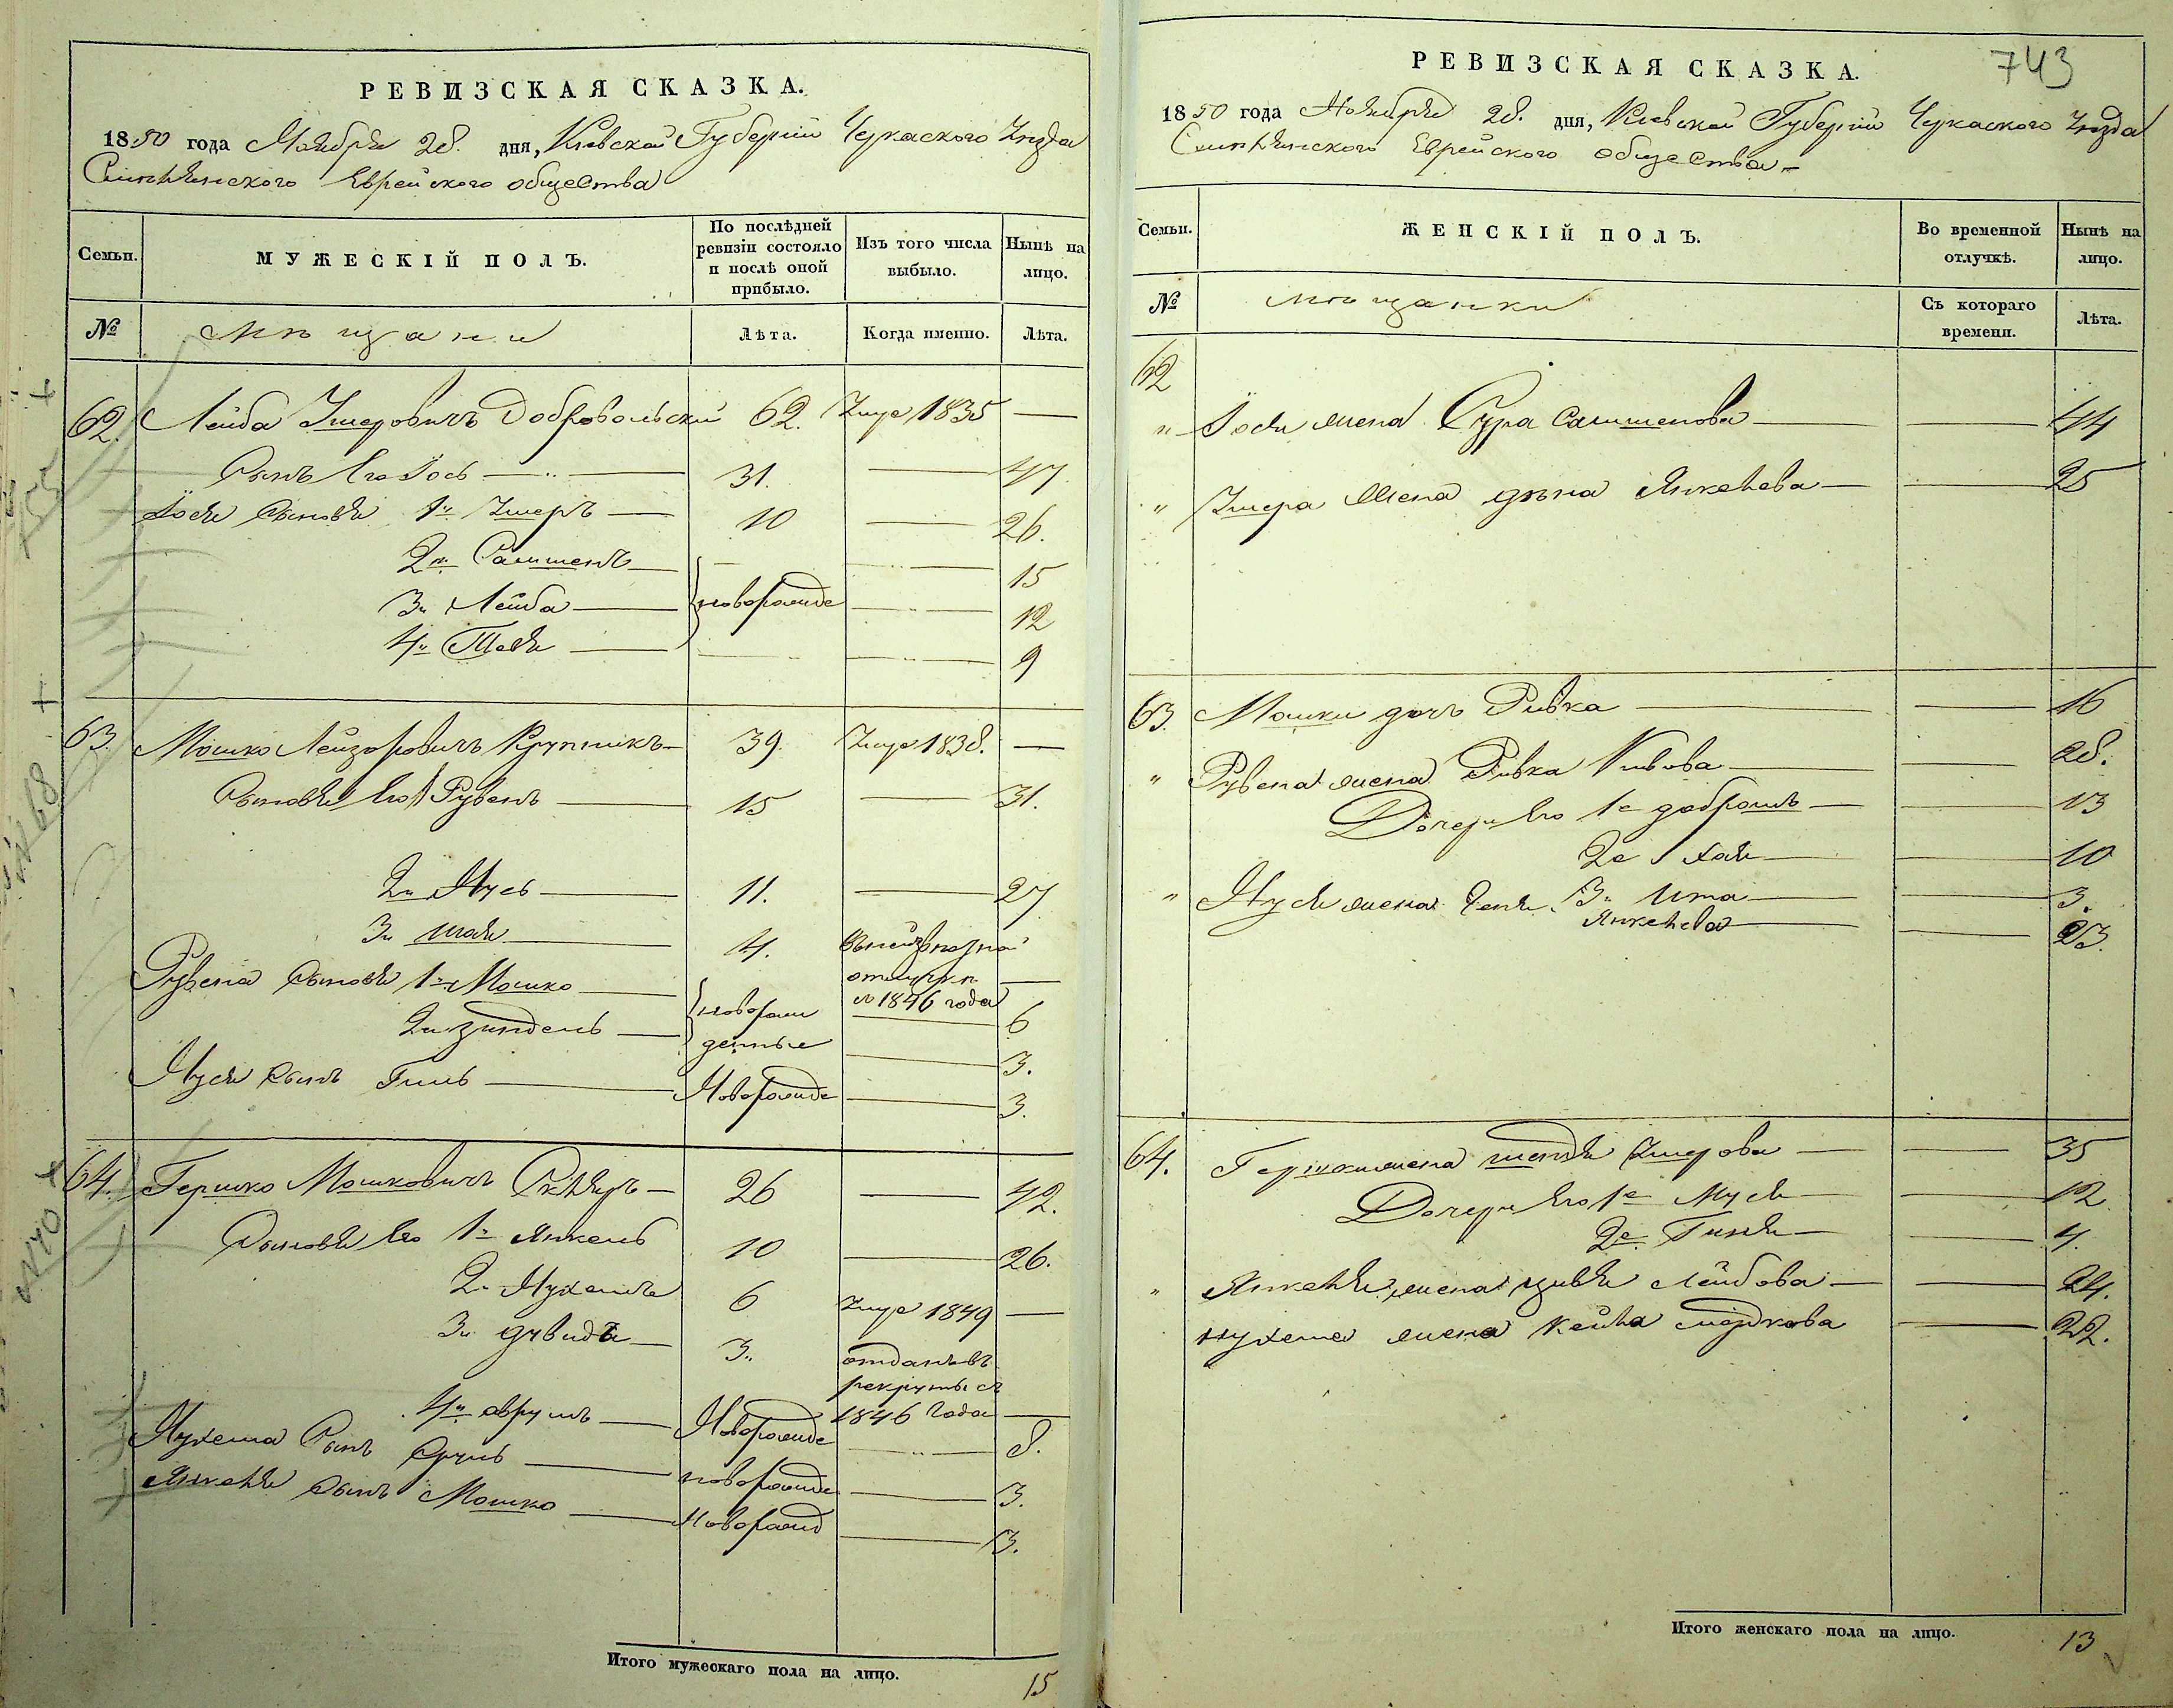 РЕВИЗСКАЯ СКАЗКА.
1850 года Ноября 28. дня, Киевской Губерніи Черкаского Уѣзда
Смѣлянского Еврейского общества
Семьи.
МУЖЕСКІЙ ПОЛЪ.
По послѣдней ревизіи состояло и послѣ оной прибыло.
Изъ того числа выбыло.
Нынѣ на лицо.
№
мѣщани
Лѣта.
Когда именно.
Лѣта.
62. Лейба Умеровичъ Добровольскій 62. Умре 1835 —
Сынъ его Іось 31. — 47
Іося сыновья 1й Умеръ 10 — 26.
2й — 15
3й Лейба новорожде — 12
4й — 9
63. Мошко Лейзоровичъ Крупникъ 39. Умре 1838. —
Сыновья его 1 Рувенъ 15 — 31.
2й Нусь 11. — 27
3й Шая 4. отлучкѣ
с 1846 года —
Рувена сыновья 1й Мошко новорож — 6
2й Зиндель денные — 3.
Нуся сынъ Гиль Новорожде — 3.
64. Гершко Мошковичъ 26 — 42.
Сыновья его 1й Янкель 10 — 26.
2й Нухемъ 6 Умре 1849 —
3й Дувидъ 3. отданъ въ
рекруты съ
1846 года —
4й Аврумъ Новорожде — 8.
Нухема сынъ Сруль новорожде — 3.
Янкеля сынъ Мошко Новорожд — 3.
Итого мужескаго пола на лицо. 15
743
РЕВИЗСКАЯ СКАЗКА.
1850 года Ноября 28. дня, Киевской Губерніи Черкаского Уѣзда
Смѣлянского Еврейского общества
Семьи.
ЖЕНСКІЙ ПОЛЪ.
Во временной отлучкѣ.
Нынѣ на лицо.
№
мѣщанки
Съ котораго времени.
Лѣта.
62
" Іоси жена Сура — 44
" Умера жена Янкелева — 25
63. Мошки дочь Ривка — 16
" Рувена жена Ривка Кивова — 28.
Дочери его 1е — 13
2е Хая — 10
3я Ита — 3.
" Нуся жена Геня Янкелева — 23.
64. Гершки жена Шейндя Умерова — 35
Дочери его 1е Муся — 12
2е Гиня — 4.
" Янкеля жена Цивья Лейбова — 24.
Нухема жена Кейла Мордкова — 22.
Итого женскаго пола на лицо. 13